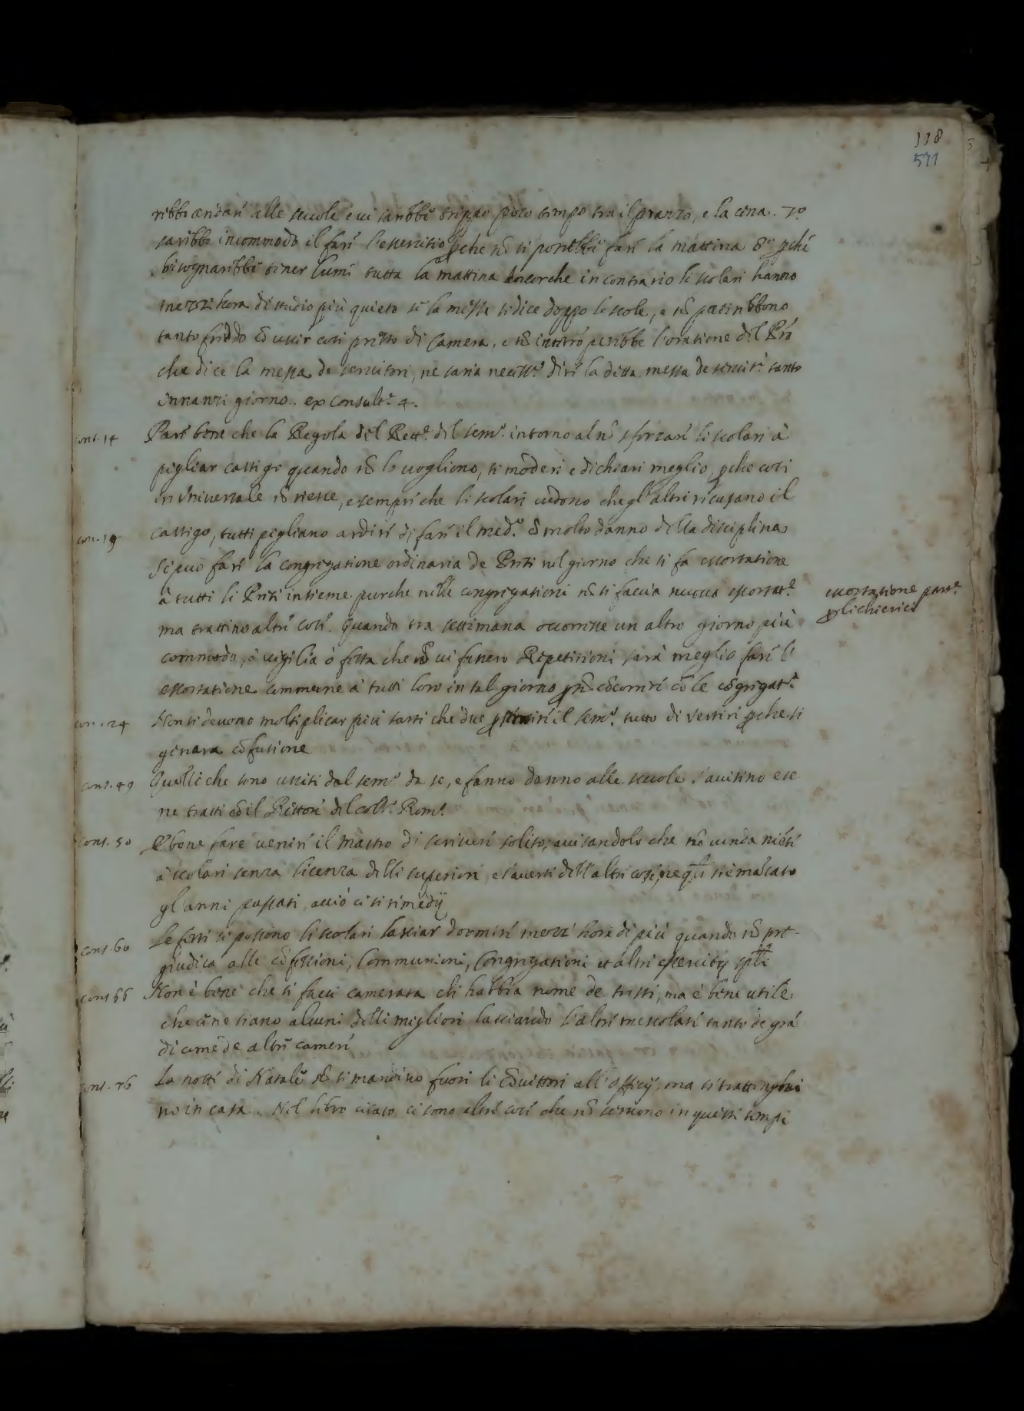 118
511
ribbe andare alle scuole e vi sarebbe troppo poco tempo tra il pranzo, e la cena. 7º
sarebbe incommodo il fare l'essercitio che nõ si potrebbe fare la mattina 8º pché
bisognarebbe tener lumi tutta la mattina ancorche in contrario li scolari hanno
mezz'hora di studio più quieto se la messa si dice doppo le scole, e nõ patirebbono
tanto freddo cõ uscir così presto di Camera, e nõ interrõperebbe l'oratione del
che dice la messa de servitori, ne saria necessº dire la detta messa de servitⁱ tanto
innanzi giorno. ex consultⁿᵉ 4.
cons. 14 Pare bene che la Regola del Rettʳ del semº intorno al nõ sforzare li scolari à
pigliar castigo quando nõ lo vogliono, si moderi e dichiari meglio, pche così
in universale nõ riesce, e sempre che li scolari vedono che gl'altri ricusano il
castigo, tutti pigliano ardire di fare il medº cõ molto danno della disciplina
con. 19 Si può fare la congregatione ordinaria de Preti nel giorno che si fa essortatione
à tutti li Preti insieme purche nelle congregationi nõ si faccia nuova essortatⁿᵉ
essortatione partʳᵉ
p li chierici
ma trattino altre cose. Quando tra settimana occorresse un altro giorno più
commodo, ò vigilia ò festa che nõ vi fusero Repetitioni sarà meglio fare l'
essortatione commune à tutti loro in tal giorno p nõ cõcorrere cõ le cõgregatⁿⁱ
con. 24 Non si devono moltiplicar più sarti che due il semº tutto di vestiri pche si
genera cõfusione
cons. 49 Quelli che sono usciti dal semº da se, e fanno danno alle scuole s'avisino e se
ne tratti cõ il Rettore del collº Romº
cons. 50 È bene fare venire il mastro di scrivere solito, avisandolo che nõ venda niente
à scolari senza licenza delli superiori, e s'averti dell'altre cose, ne qᵗⁱ si è mãcato
gl'anni passati, acciò ci si rimedij
cons. 60 Le feste si possono li scolari lasciar dormire mezz'hora di più quando nõ pre-
giudica alle cõfessioni, Communioni, Congregationi et altri essercitij spˡⁱ
cons. 66 Non è bene che si facci camerata ch habbia nome de tristi, ma è bene utile
che ce ne siano alcuni delli migliori lasciando l'altri mescolati tanto de grã
di come de altre camere
cons. 76 La notte di Natale nõ si mandino fuori li cõvittori all'officij, ma si trattenghi
no in casa. Nel libro citato ci sono altre cose che nõ servono in questi tempi